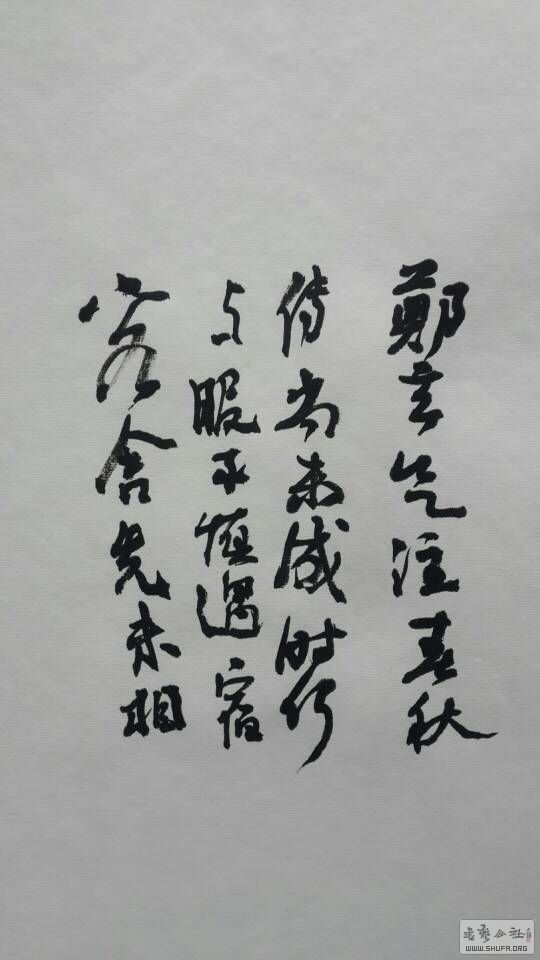 鄭玄欲注春秋
传尚未成时行
与服子慎遇宿
客舍先未相
书艺公社
WWW.SHUFA.ORG